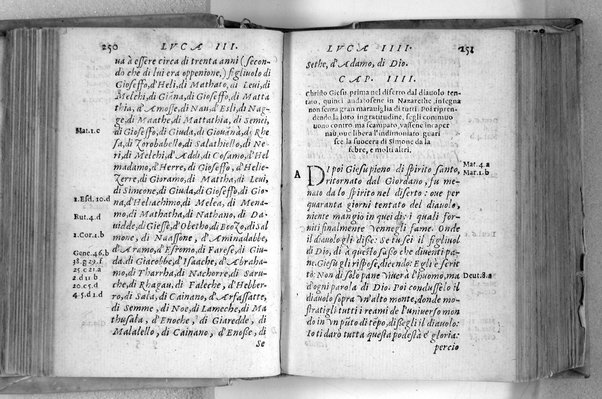 250 LVCA III.
ua à essere circa di trenta anni (secon
do che di lui era oppenione,) figliuolo di
Gioseffo, d'Heli, di Mathato, di Leui, di
Melchi, di Gianna, di Gioseffo, di Matta
thia, d'Amosse, di Nau, d'Esli, di Nag-
ge di Maathe, di Mattathia, di Semei,
Mat.1.c
di Gioseffo, di Giuda, di Giouanà, di Rhe
sa, di Zorobabello, di Salathiello, di Ne
ri, di Melchi, d'Addi, di Cosamo, d'Hel
madamo, d'Herre, di Gioseffo, d'Helie-
Zerre, di Gioramo, di Mattha, di Leui,
di Simeone, di Giuda, di Gioseffo, di Gio
1.Esd.10.d
na, d'Heliachimo, di Melea, di Mena-
mo, di Mathatha, di Nathano, di Da-
Rut.4.d
uidde, di Giesse, d'Obetho, di Boozo, di Sal
1.Cor.2.b
mone, di Naassone, d'Aminadabbe,
d'Aramo, d'Esromo, di Farese, di Giu-
Gene.46.b
da, di Giacobbe, d'Isaache, d'Abraha-
38.g 29.f
mo, di Tharrha, di Nachorre, di Saru-
25.c 21.a
che, di Rhagau, di Faleche, d'Helber-
2.d 11.b
ro, di Sala, di Cainano, d'Arfasatte,
20.c 5.d
di Semme, di Noe, di Lameche, di Ma
4.5.d 1.d
thusala, d'Enoche, di Giaredde, di
Malalello, di Cainano, d'Enosse, di
Se
LVCA IIII. 251
Sethe, d'Adamo, di Dio.
CAP. IIII.
Christo Giesu prima nel diserto dal diauolo ten-
tato, quinci andatosene in Nazarethe insegna
non senza gran marauiglia di tutti. Poi ripren-
dendo la loro ingratitudine, fegli commuo
uono contro ma scampato, vassene in caper
nau, oue libera l'indimoniato guari
sce la suocera di Simone da la
febre, e molti altri.
A
DI poi Giesu pieno di spirito santo,
Mat.4.a
ritornato dal Giordano, fu me-
Mar.1.b
nato da lo spirito nel diserto: oue per
quaranta giorni tentato del diauolo,
niente mangio in quei dì: i quali for-
niti finalmente vennegli fame. Onde
il diauolo gli disse: Se tu sei il figliuol
di Dio, di à questo sasso che diuenti pa-
ne. Giesu gli rispose, dicendo: Egli è scrit
to: Non di solo pane viuerà l'huomo, ma
Deut.8.a
d'ogni parola di Dio. Poi condusselo il
diauolo sopra vn'alto monte, donde mo-
stratigli tutti i reami de l'uniuerso mon
do in vn pũto di tẽpo, dissegli il diauolo:
Io ti daró tutta questa podestà e gloria:
percio